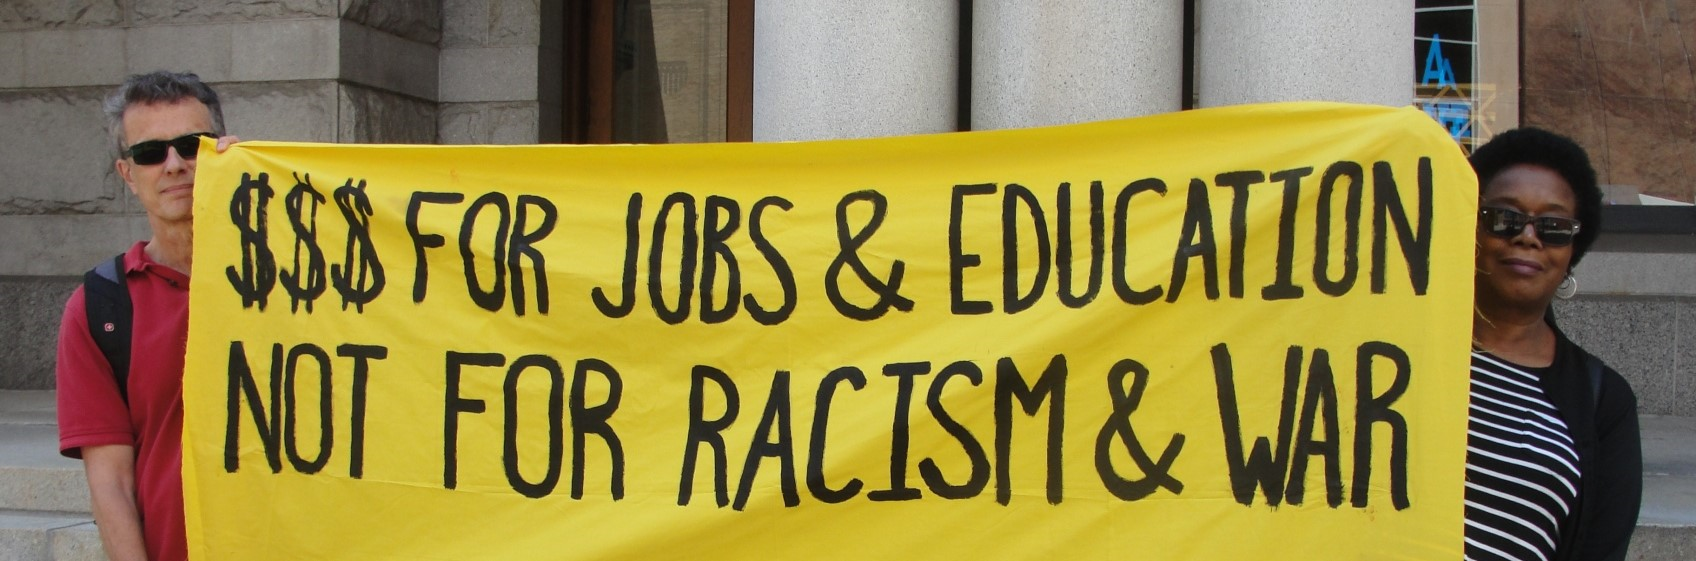 $$$ FOR JOBS & EDUCATION
NOT FOR RACISM & WAR